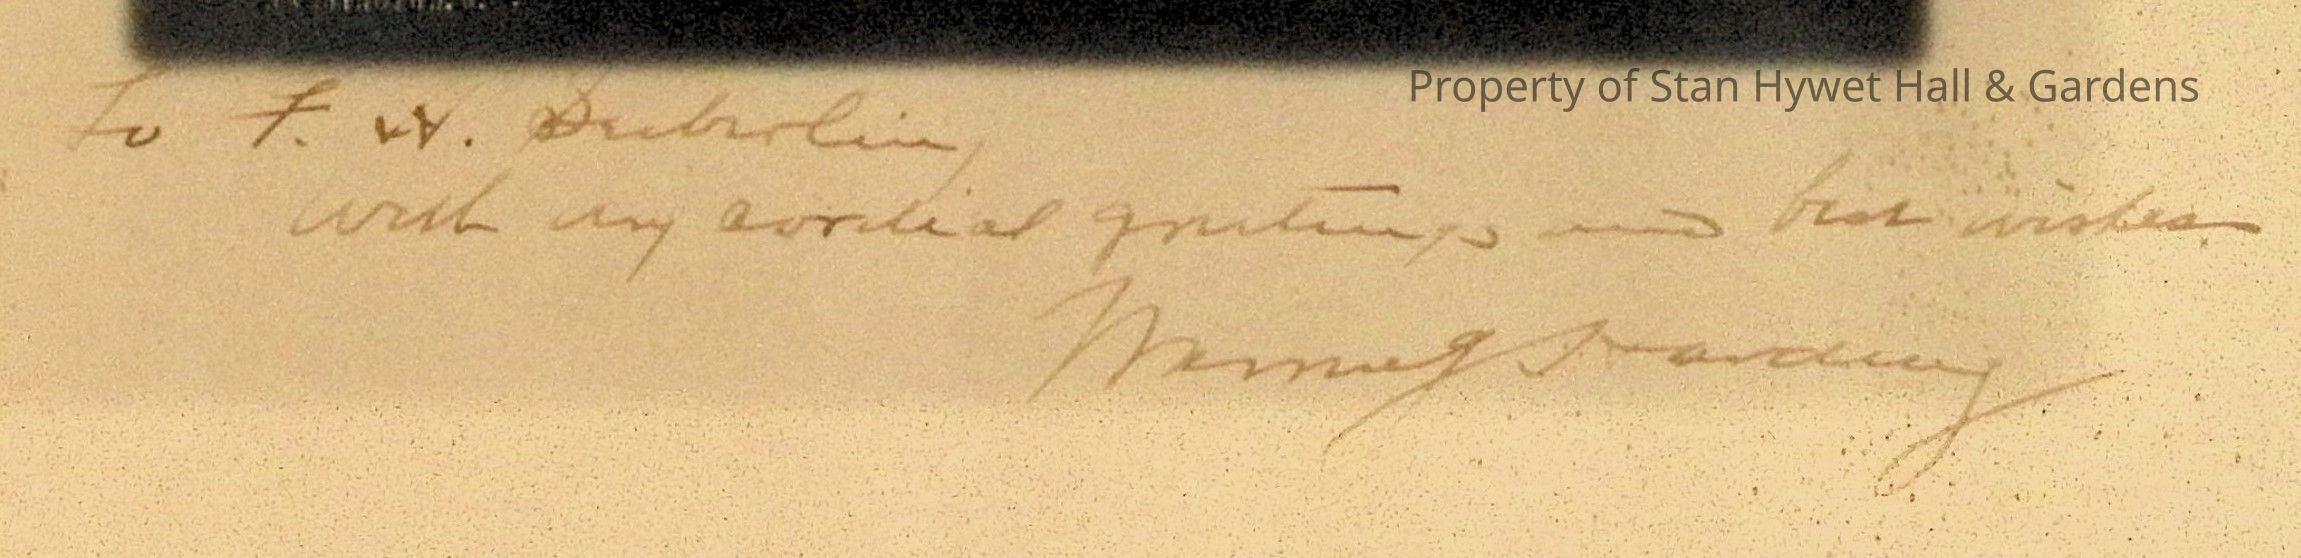 Property of Stan Hywet Hall & Gardens
To F. W. Seiberling
With my cordial greetings and best wishes.
Warren G Harding